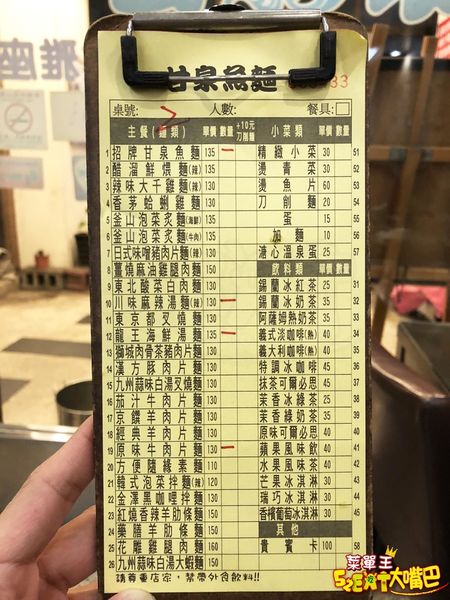 甘泉魚麵
桌號: 人數: 餐具:□
主餐(麵類) 單價 數量 +10元 刀削麵 小菜類 單價 數量
1 招牌甘泉魚麵 135 精緻小菜 30 51
2 醋溜鮮煨麵(辣) 135 燙青菜 30 52
3 辣味大千雞麵(辣) 135 燙魚片 60 53
4 香茅蛤蜊雞麵 135 刀削麵 20 54
5 釜山泡菜炙麵(海鮮) 135 蛋 15 55
6 釜山泡菜炙麵(牛肉) 135 加麵 10 56
7 日式味噌豬肉片麵 120 溏心溫泉蛋 25 57
8 薑燒麻油雞腿肉麵 150 飲料類 單價 數量
9 東北酸菜白肉麵 130 錫蘭冰紅茶 25 31
10 川味麻辣湯麵(辣) 130 錫蘭冰奶茶 35 32
11 東京都叉燒麵 130 阿薩姆熱奶茶 40 33
12 龍王海鮮麵 135 義式淡咖啡(熱) 40 34
13 獅城肉骨茶豬肉片麵 130 義大利咖啡(熱) 40 35
14 漢方豚肉片麵 130 特調冰咖啡 45 36
15 九州蒜味白湯叉燒麵 130 抹茶可爾必思 45 37
16 茄汁牛肉片麵 130 茉香冰綠茶 25 38
17 京饌羊肉片麵 130 茉香綠奶茶 35 39
18 經典羊肉片麵 130 原味可爾必思 40 40
19 原味牛肉片麵 130 蘋果風味飲 40 41
20 方便隨緣素麵 110 水果風味茶 40 42
21 韓式泡菜拌麵(辣) 120 芒果冰淇淋 30 43
22 金澤黑咖哩拌麵 130 瑞巧冰淇淋 30 44
23 紅燒香辣羊肋條麵 150 香檳葡萄冰淇淋 30 45
24 藥膳羊肋條麵 150 其他
25 花雕雞腿肉麵 160 貴賓卡 100 58
26 九州蒜味白湯大蝦麵 150
請尊重店家,禁帶外食飲料!!
雅座
菜單王
SEEAT大嘴巴